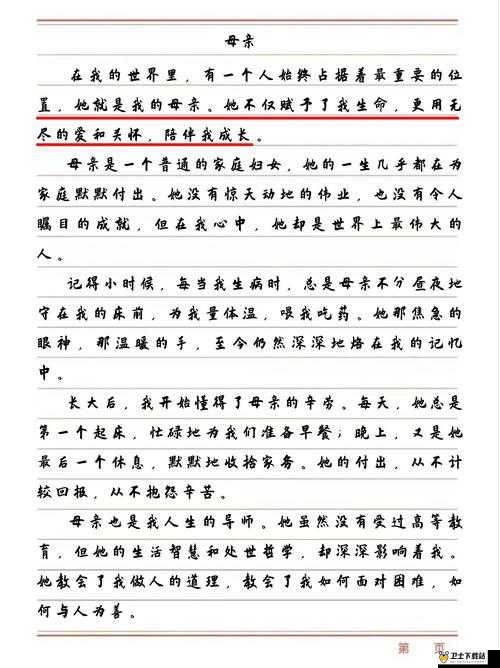 母亲
在我的世界里，有一个人始终占据着最重要的位
置，她就是我的母亲。她不仅赋予了我生命，更用无
尽的爱和关怀，陪伴我成长。
母亲是一个普通的家庭妇女，她的一生几乎都在为
家庭默默付出。她没有惊天动地的伟业，也没有令人
瞩目的成就，但在我心中，她却是世界上最伟大的
人。
记得小时候，每当我生病时，总是母亲不分昼夜地
守在我的床前，为我量体温，喂我吃药。她那焦急的
眼神，那温暖的手，至今仍然深深地烙在我的记忆
中。
长大后，我开始懂得了母亲的辛劳。每天，她总是
第一个起床，忙碌地为我们准备早餐；晚上，又是她
最后一个休息，默默地收拾家务。她的付出，从不计
较回报，从不抱怨辛苦。
母亲也是我人生的导师。她虽然没有受过高等教
育，但她的生活智慧和处世哲学，却深深影响着我。
她教会了我做人的道理，教会了我如何面对困难，如
何与人为善。
第 页
卫士下载站